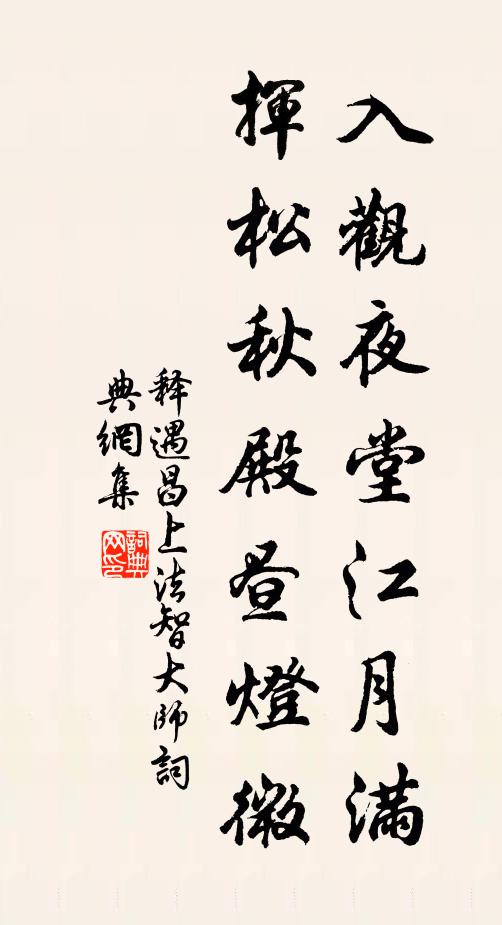 入觀夜堂江月滿
揮松秋殿昼燈微
释遇昌上法智大師詞
典網集
詞典
网印